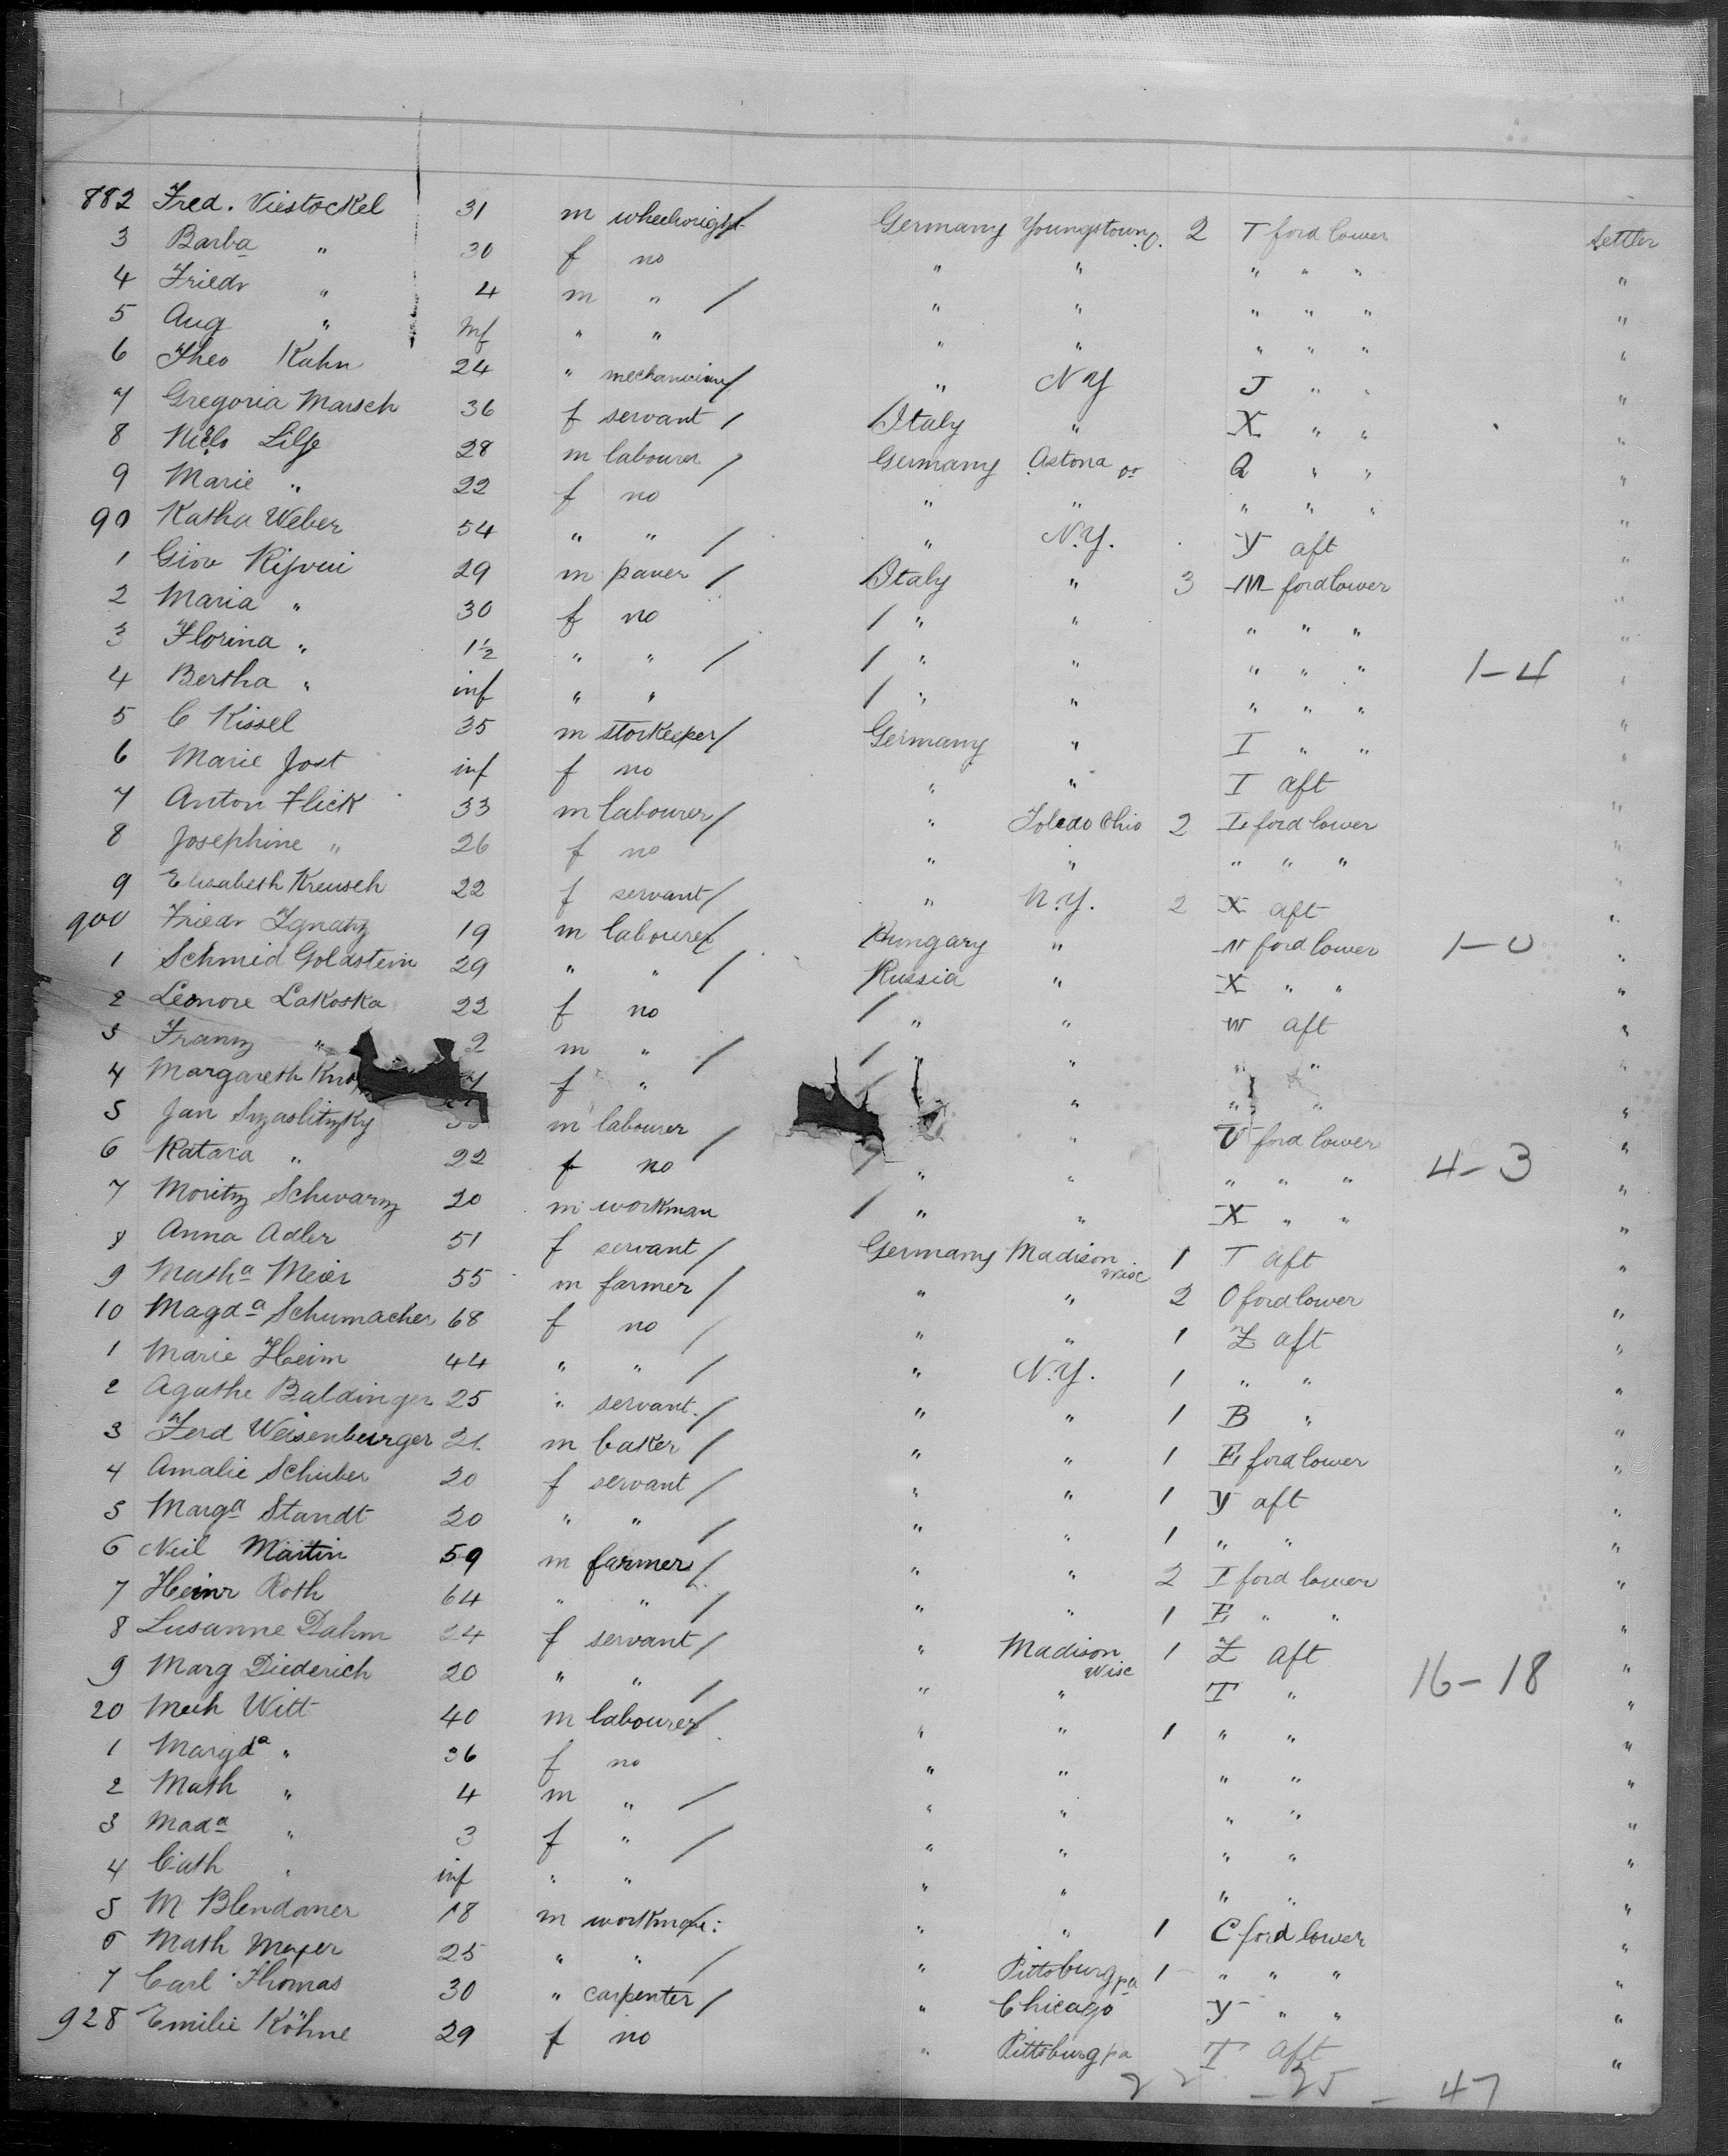 882 Fred. Viestockel 31 m wheelwright Germany Youngstown O. 2 T ford lower settler
3 Barba " 30 f no " " " " " "
4 Friedr " 4 m " / " " " " " "
5 Aug " inf " " " " " " " "
6 Theo Kahn 24 " mechanician / " N Y J " " "
7 Gregoria Marsch 36 f servant / Italy " X " " "
8 Niels Lilje 28 m labourer / Germany Astoria or Q " " "
9 Marie " 22 f no " " " " " "
90 Katha Weber 54 " " / " N.Y. Y aft "
1 Giov 29 m paver / Italy " 3 M ford lower "
2 Maria " 30 f no / " " " " " "
3 Florina " 1½ " " / / " " " " " 1-4 "
4 Bertha " inf " " / " " " " " "
5 C Kissel 35 m storkeeper / Germany " I " " "
6 Marie Jost inf f no " " I aft "
7 Anton Flick 33 m labourer / " Toledo Ohio 2 L ford lower "
8 Josephine " 26 f no " " " " " "
9 Elisabeth Kreusch 22 f servant / " N.Y. 2 X aft "
900 Friedr Ignatz 19 m labourer / Hungary " N ford lower 1-0 "
1 Schmid Goldstein 29 " " / Russia " X " " "
2 Leonore Lakoska 22 f no / " " W aft "
3 Franz " 2 m " / / " " " " "
4 Margareth f " / " " " "
5 Jan m labourer / " U ford lower "
6 Kataria " 22 f no / " " " " " 4-3 "
7 Moritz Schwarz 20 m workman / " " X " " "
8 Anna Adler 51 f servant / Germany Madison Wisc 1 T aft "
9 Matha Meier 55 m farmer / " " 2 O ford lower "
10 Magda Schumacher 68 f no / " " 1 Z aft "
1 Marie Heim 44 " " / " N.Y. 1 " " "
2 Agathe Baldinger 25 " servant / " " 1 B " "
3 Ferd Weisenburger 21 m baker / " " 1 E ford lower "
4 Amalie Schuber 20 f servant / " " 1 Y aft "
5 Marga Standt 20 " " / " " 1 " " "
6 Neil Martin 59 m farmer / " " 2 I ford lower "
7 Heinr Roth 64 " " / " " 1 E " " "
8 Susanne Dahm 24 f servant / " Madison Wisc 1 Z aft "
9 Marg Diederich 20 " " / " " T " 16-18 "
20 Witt 40 m labourer / " " 1 " " "
1 Margda " 36 f no " " " " "
2 Math " 4 m " / " " " " "
3 Mada " 3 f " / " " " " "
4 Cath " inf " " " " " " "
5 M 18 m workman " " 1 C ford lower "
6 Math Meyer 25 " " / " Pittsburg pa 1 " " " "
7 Carl Thomas 30 " carpenter / " Chicago Y " " "
928 Emilie Köhne 29 f no " Pittsburg pa T aft "
22 - 25 - 47